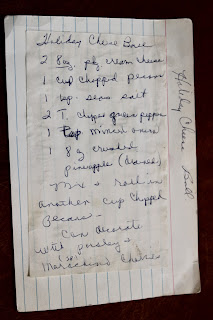 Holiday Cheese Ball
2 8oz. pkg cream cheese
1 cup chopped pecans
1 tsp. seas salt
2 T. chopped green pepper
1 Tbsp minced onion
1 8 oz crushed
pineapple (drained)
Mix & roll in
another cup chopped
Pecans -
Can decorate
with parsley &
Maraschino Cherries
Holiday Cheese Ball